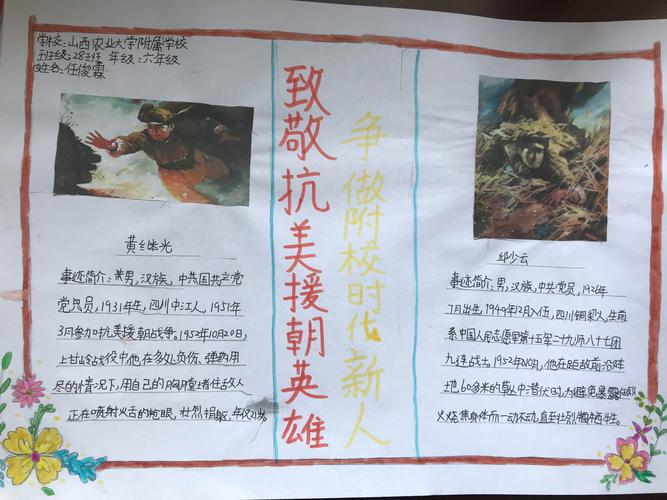 学校:山西农业大学附属学校
班级:28班 年级:六年级
姓名:任俊霖
致敬抗美援朝英雄
争做附校时代新人
黄继光
事迹简介:黄男,汉族,中共国共产党
党员,1931年生,四川中江人,1951年
3月参加抗美援朝战争。1952年10月20日,
上甘岭战役中他在多处负伤、弹药用
尽的情况下,用自己的胸膛堵住敌人
正在喷射火舌的枪眼,壮烈捐躯,年仅21岁。
邱少云
事迹简介:男,汉族,中共党员,1926年
7月出生,1949年12月入伍,四川铜梁人,生前
系中国人民志愿军第十五军二十九师八十七团
九连战士,1952年10月,他在距敌前沿阵
地60多米的草丛中潜伏时,为避免暴露任
火烧焦身体而一动不动,直至壮烈牺牲。